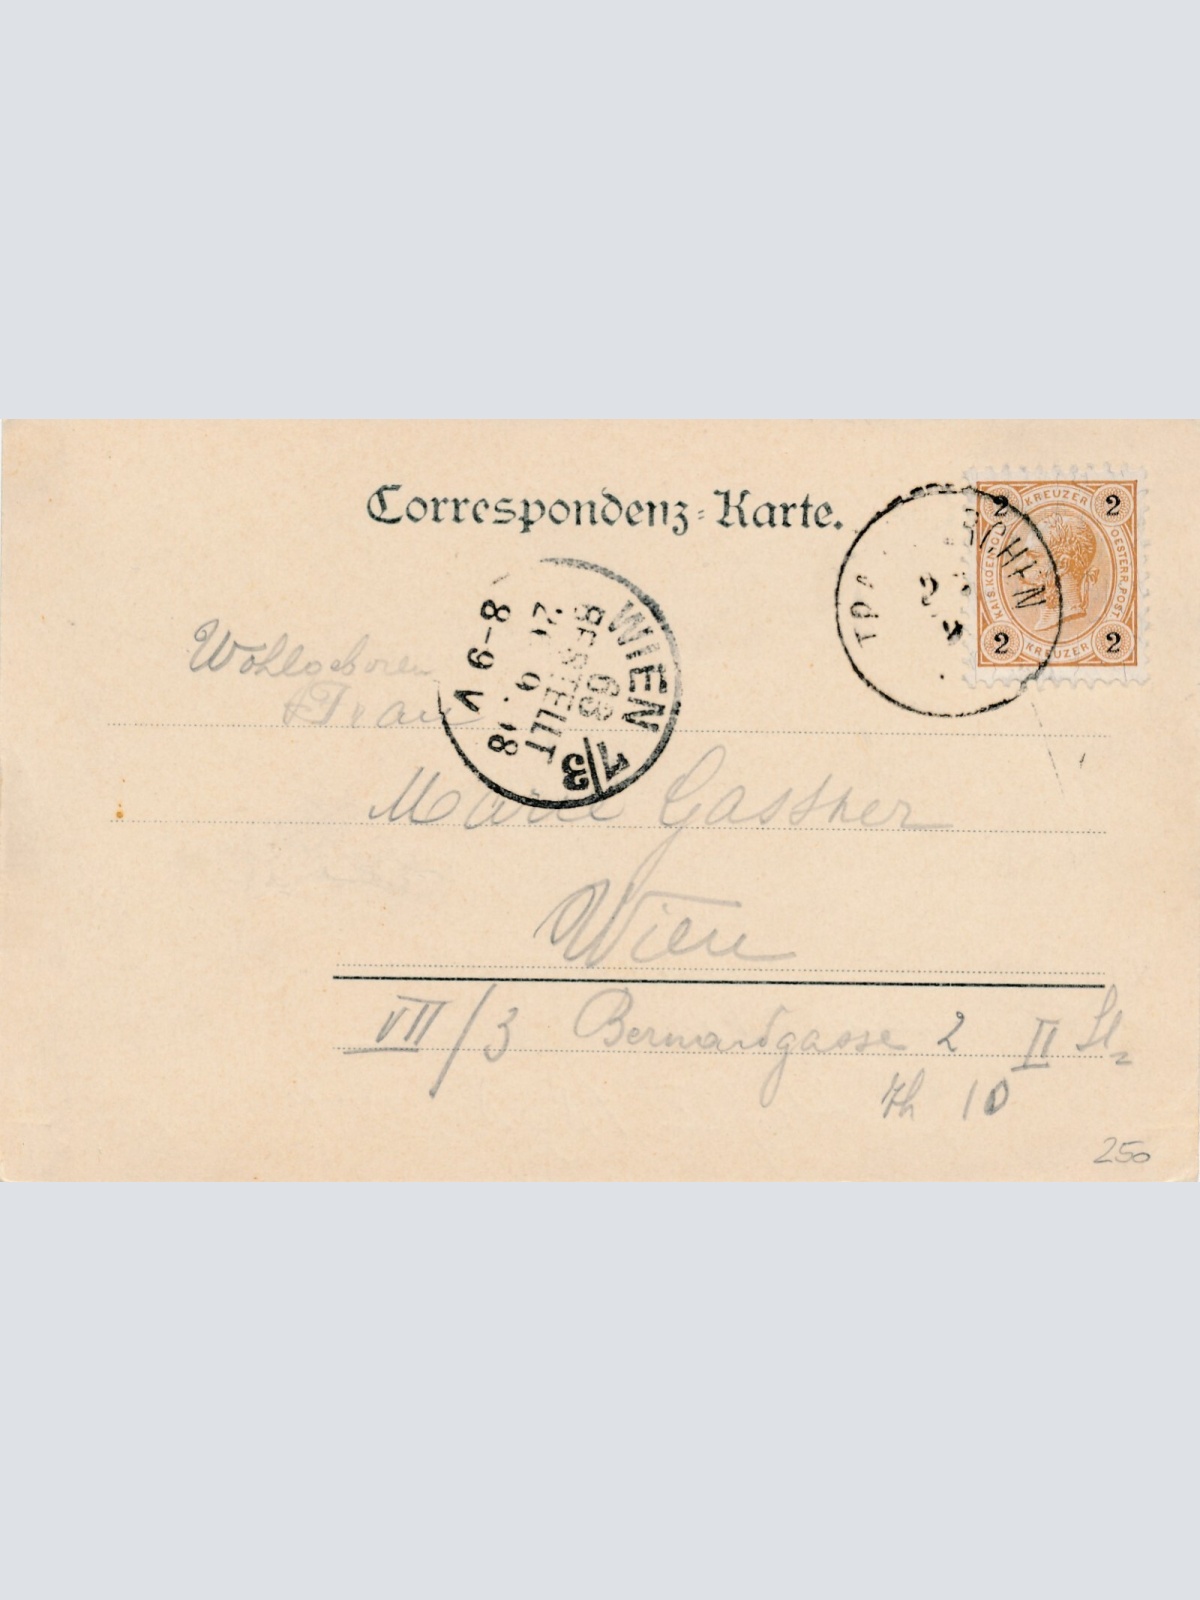 Correspondenz-Karte.
KREUZER
2 2
KAIS. KOENIGL. OESTERR. POST
2 2
KREUZER
WIEN 7/3
63
BESTELLT
8-9 V
Wohlgeboren
Frau
Marie Gassner
Wien
VII/3 Bernardgasse 2 II St
Th 10
250